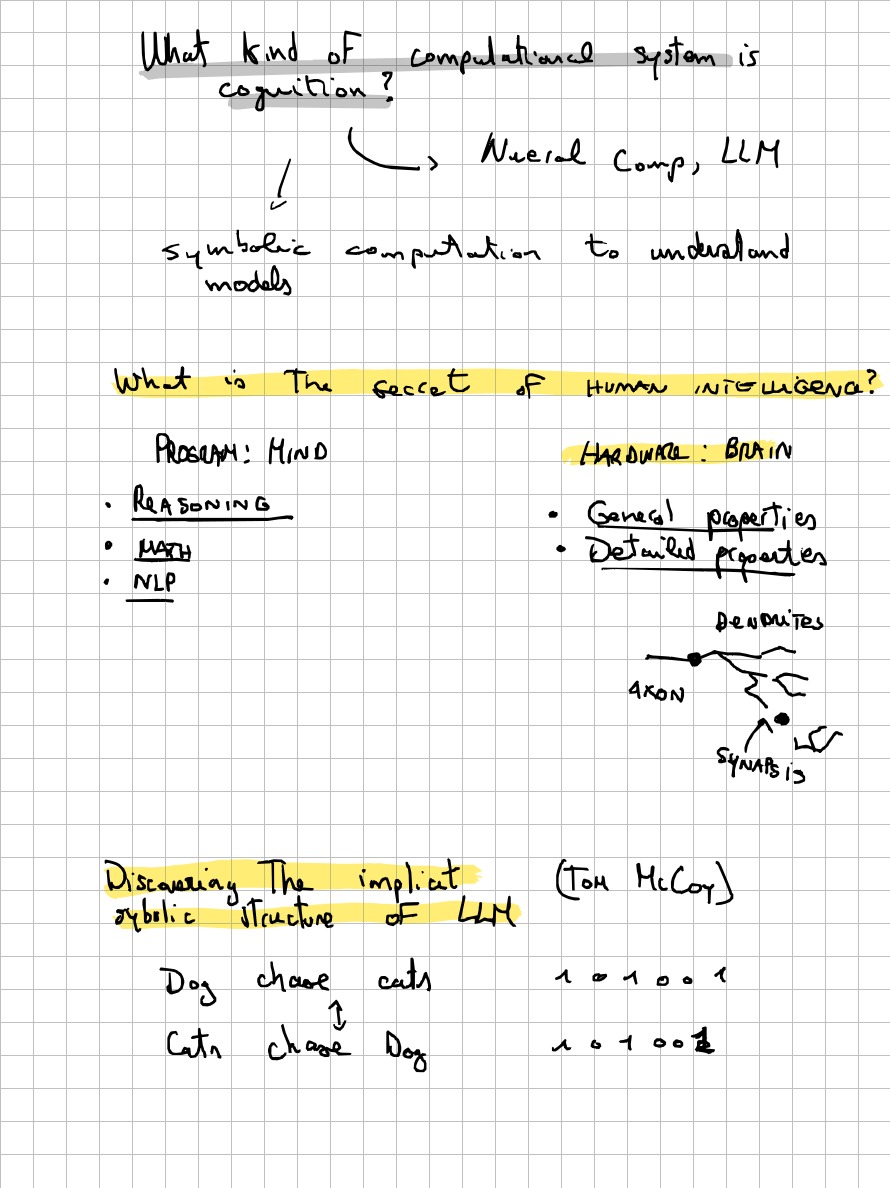 What kind of computational system is
cognition?
Nueral Comp, LLM
symbolic computation to understand
models
What is The secret of HUMAN INTELLIGENCE?
PROGRAM: MIND
• REASONING
• MATH
• NLP
HARDWARE: BRAIN
• General properties
• Detailed properties
DENDRITES
AXON
SYNAPSIS
Discovering The implicit
sybolic structure of LLM
(TOM McCoy)
Dog chase cats 1 0 1 0 0 1
Cats chase Dog 1 0 1 0 0 1